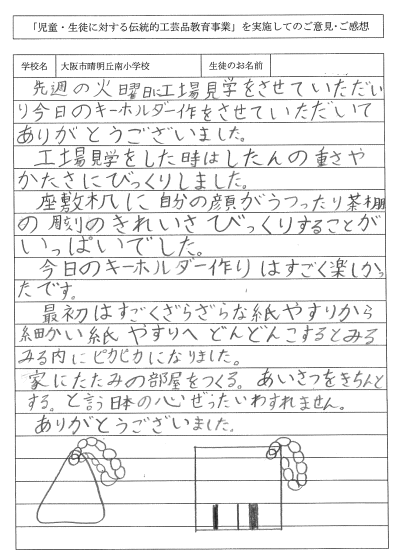 「児童・生徒に対する伝統的工芸品教育事業」を実施してのご意見・ご感想
学校名 大阪市晴明丘南小学校 生徒のお名前
先週の火曜日に工場見学をさせていただい
り今日のキーホルダー作をさせていただいて
ありがとうございました。
工場見学をした時はしたんの重さや
かたさにびっくりしました。
座敷机に自分の顔がうつったり茶棚
の彫刻のきれいさびっくりすることが
いっぱいでした。
今日のキーホルダー作りはすごく楽しかっ
たです。
最初はすごくざらざらな紙やすりから
細かい紙やすりへどんどんこするとみる
みる内にピカピカになりました。
家にたたみの部屋をつくる。あいさつをきちんと
する。と言う日本の心ぜったいわすれません。
ありがとうございました。